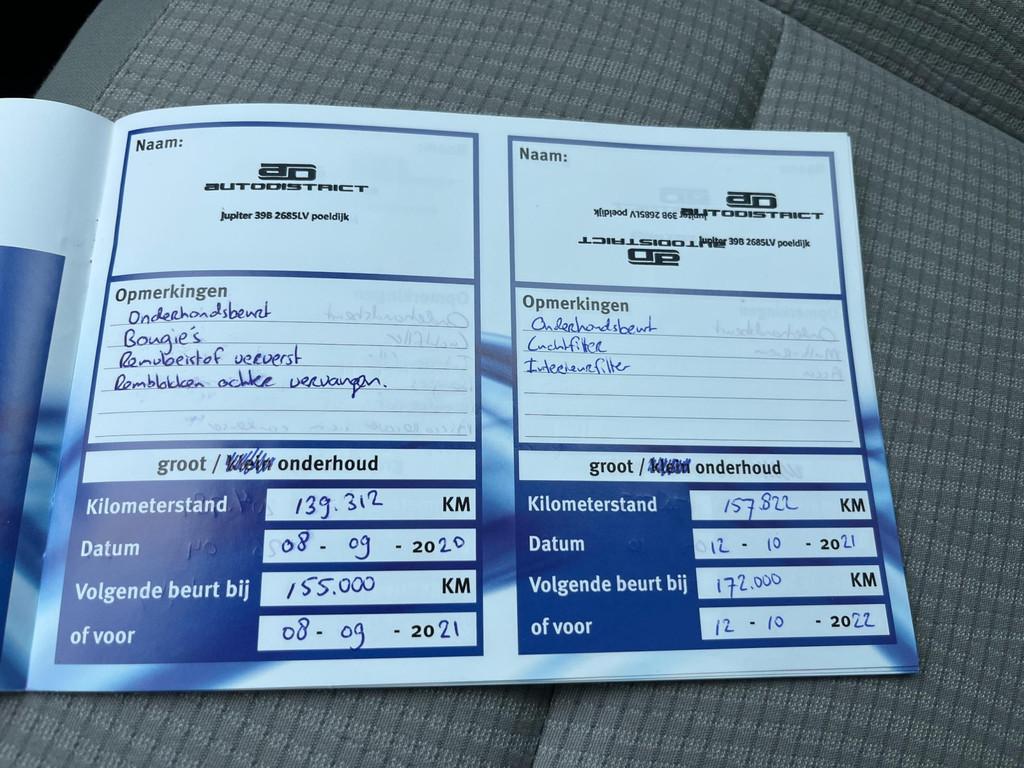 Naam:
AD
AUTODISTRICT
Jupiter 39B 2685LV poeldijk
Opmerkingen
Onderhoudsbeurt
Bougie's
Remvloeistof ververst
Remblokken achter vervangen.
groot / klein onderhoud
Kilometerstand 139.312 KM
Datum 08 - 09 - 2020
Volgende beurt bij 155.000 KM
of voor 08 - 09 - 2021
Naam:
AD
AUTODISTRICT
Jupiter 39B 2685LV poeldijk
Jupiter 39B 2685LV poeldijk
AUTODISTRICT
AD
Opmerkingen
Onderhoudsbeurt
Luchtfilter
Interieurfilter
groot / klein onderhoud
Kilometerstand 157.822 KM
Datum 12 - 10 - 2021
Volgende beurt bij 172.000 KM
of voor 12 - 10 - 2022